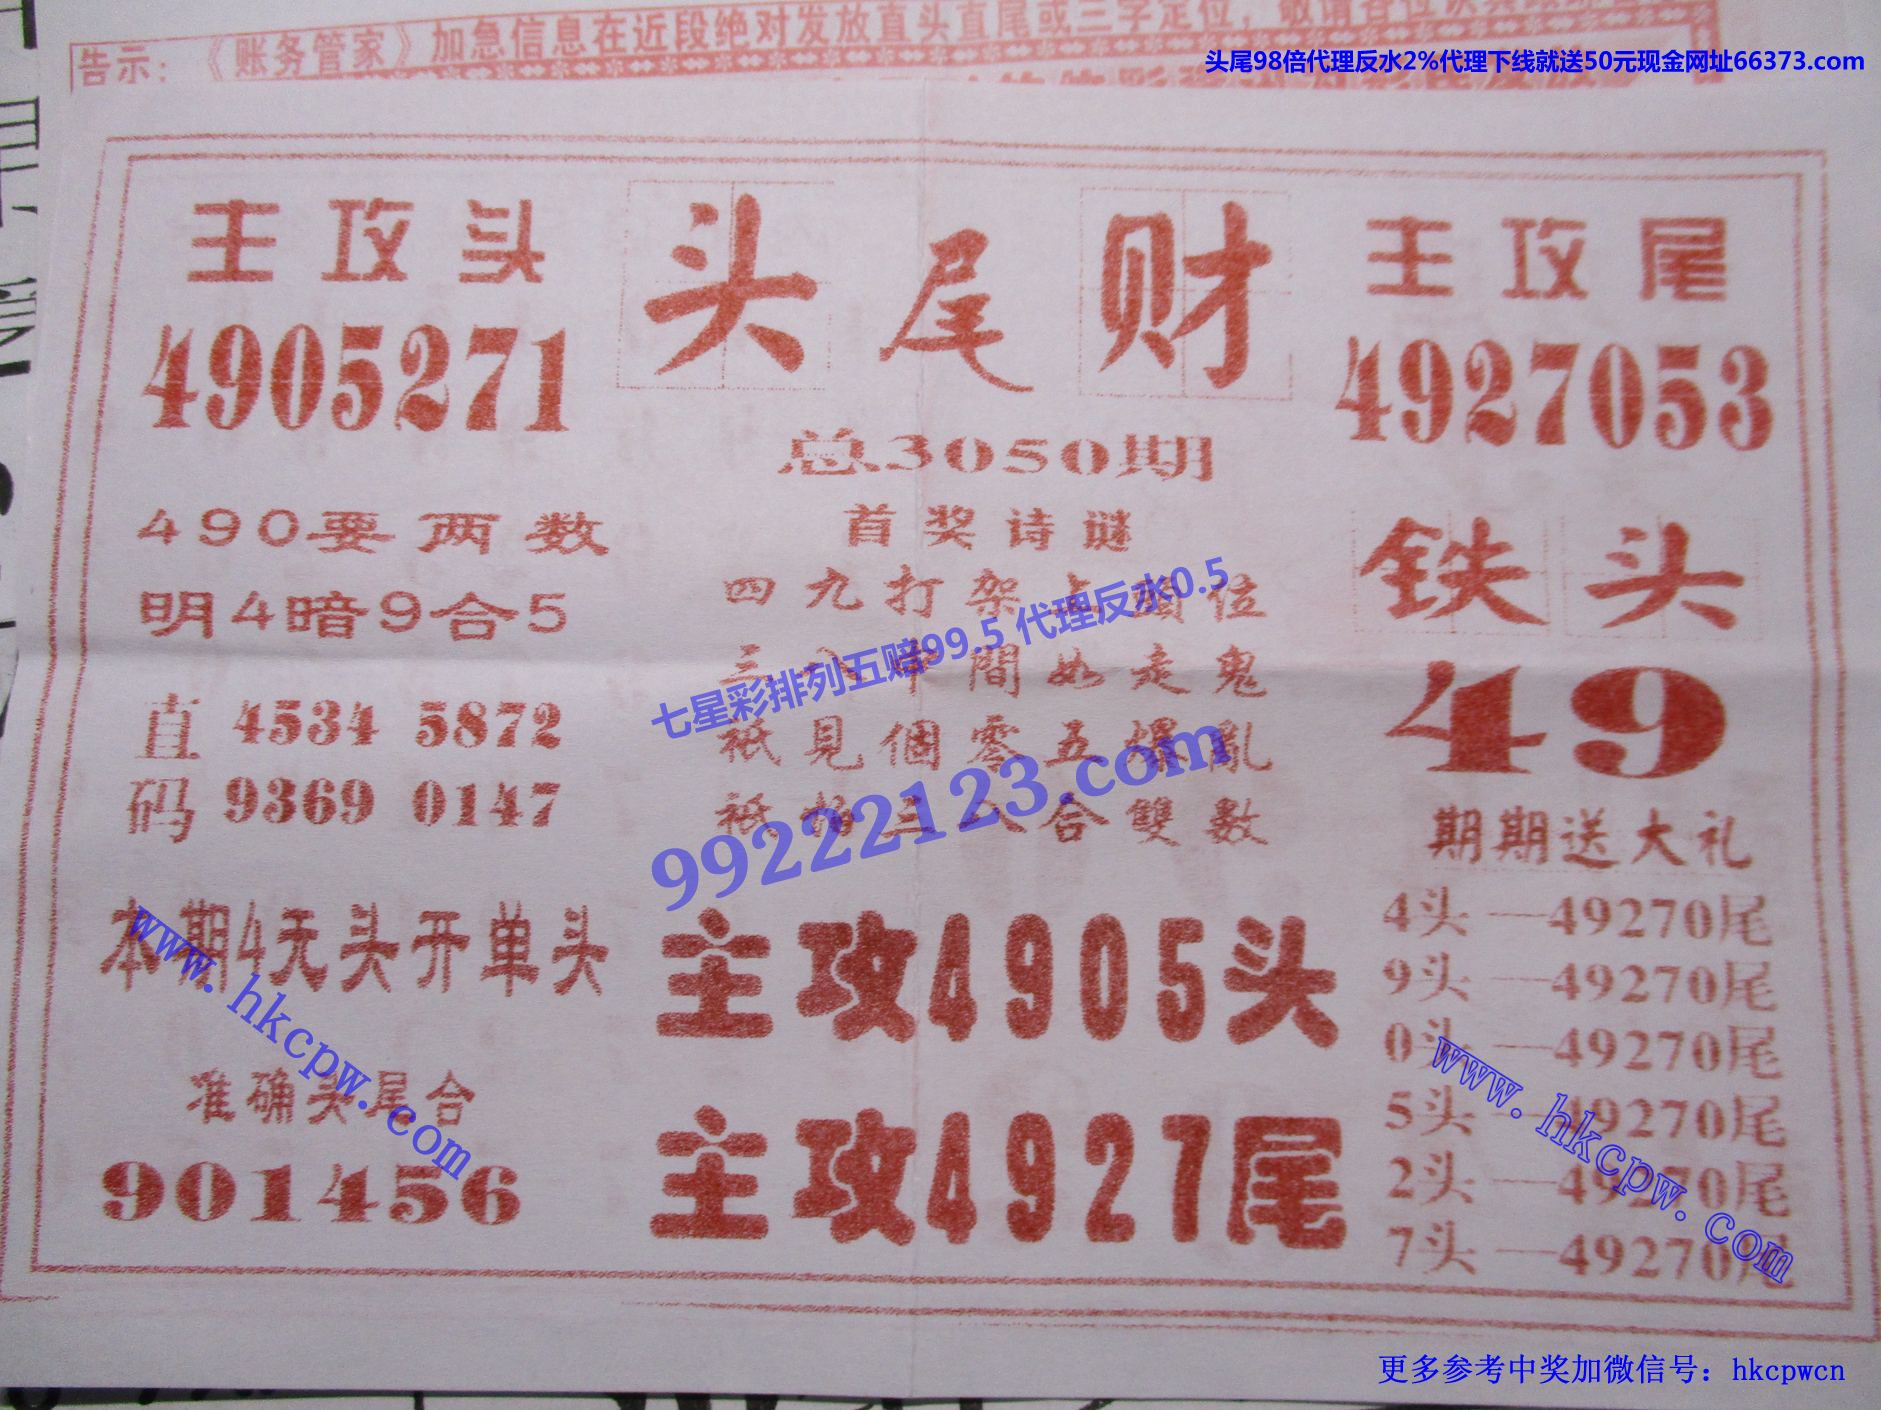 告示：《账务管家》加急信息在近段绝对发放直头直尾或三字定位，敬请各位
头尾98倍代理反水2%代理下线就送50元现金网址66373.com
主攻头
4905271
头尾财
主攻尾
4927053
总3050期
490要两数
明4暗9合5
首奖诗谜
四九打架占頭位
三八中間如走鬼
祇見個零五爆亂
祇 三八合雙數
七星彩排列五赔99.5 代理反水0.5
99222123.com
铁头
49
直码
4534 5872
9369 0147
期期送大礼
4头—49270尾
9头—49270尾
0头—49270尾
5头—49270尾
2头—49270尾
7头—49270尾
本期4无头开单头
www.hkcpw.com
准确头尾合
901456
主攻4905头
主攻4927尾
www.hkcpw.com
更多参考中奖加微信号：hkcpwcn